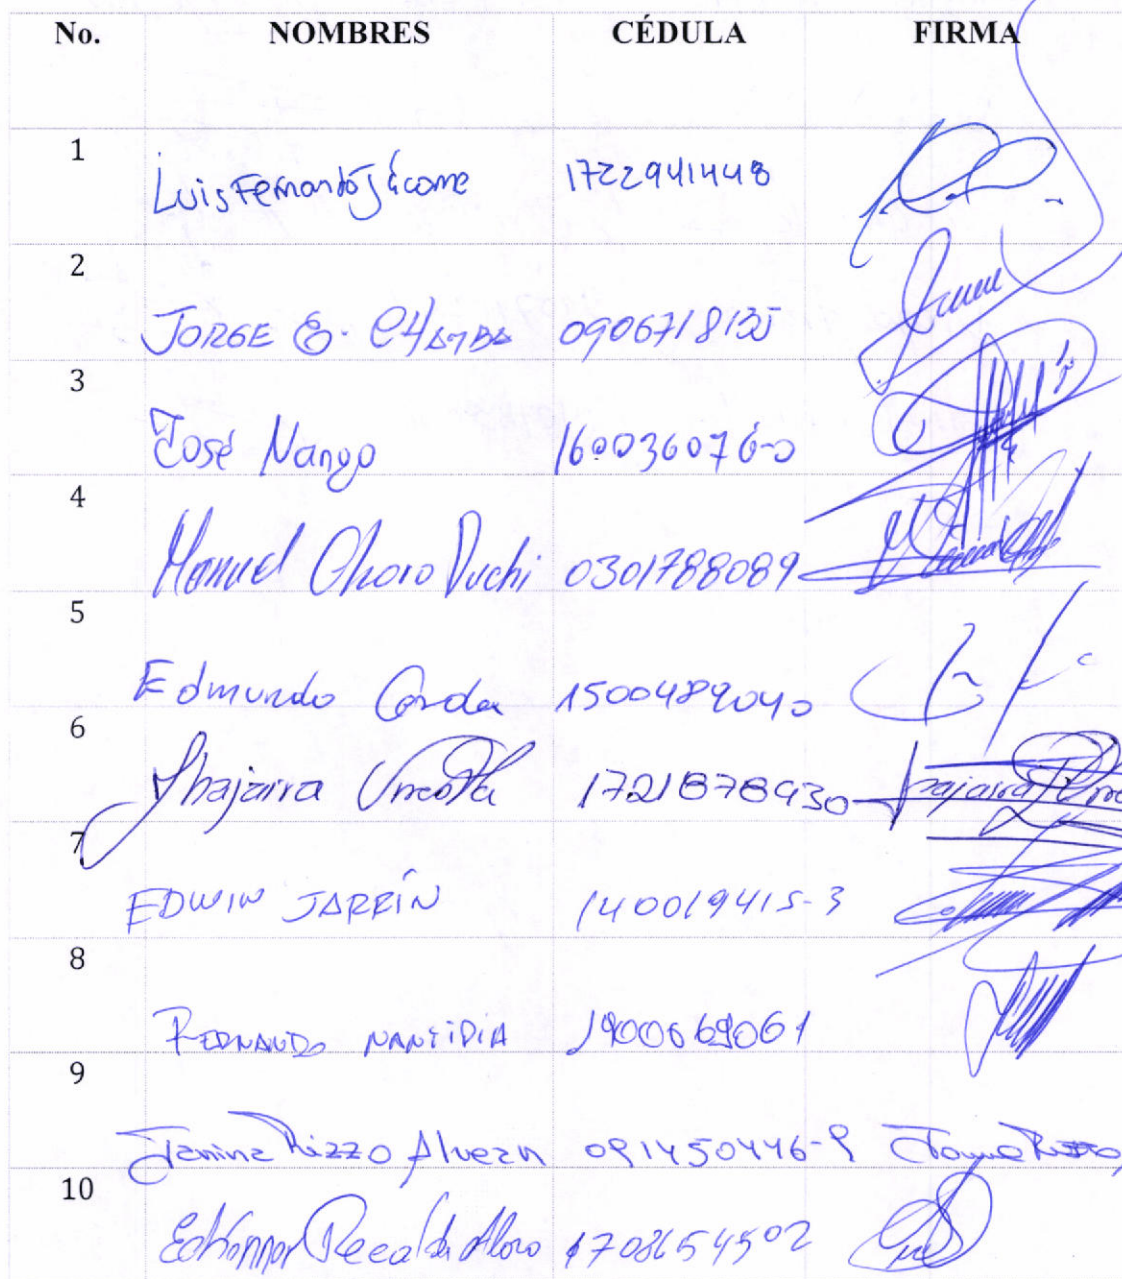 No. NOMBRES CÉDULA FIRMA
1 Luis Fernando Jácome 1722941448
2 JORGE E. CHAMBA 0906718135
3 José Nango 160036076-0
4 Manuel Choro Puchi 0301788089
5 Edmundo Cerda 1500489040
6 Yhajaira Urresta 1721878930
7 EDWIN JARRÍN 140019415-3
8 FERNANDO NANTIPIA 1400669061
9 Janina Rizzo Alvean 091450446-9
10 Recalde 1708654502